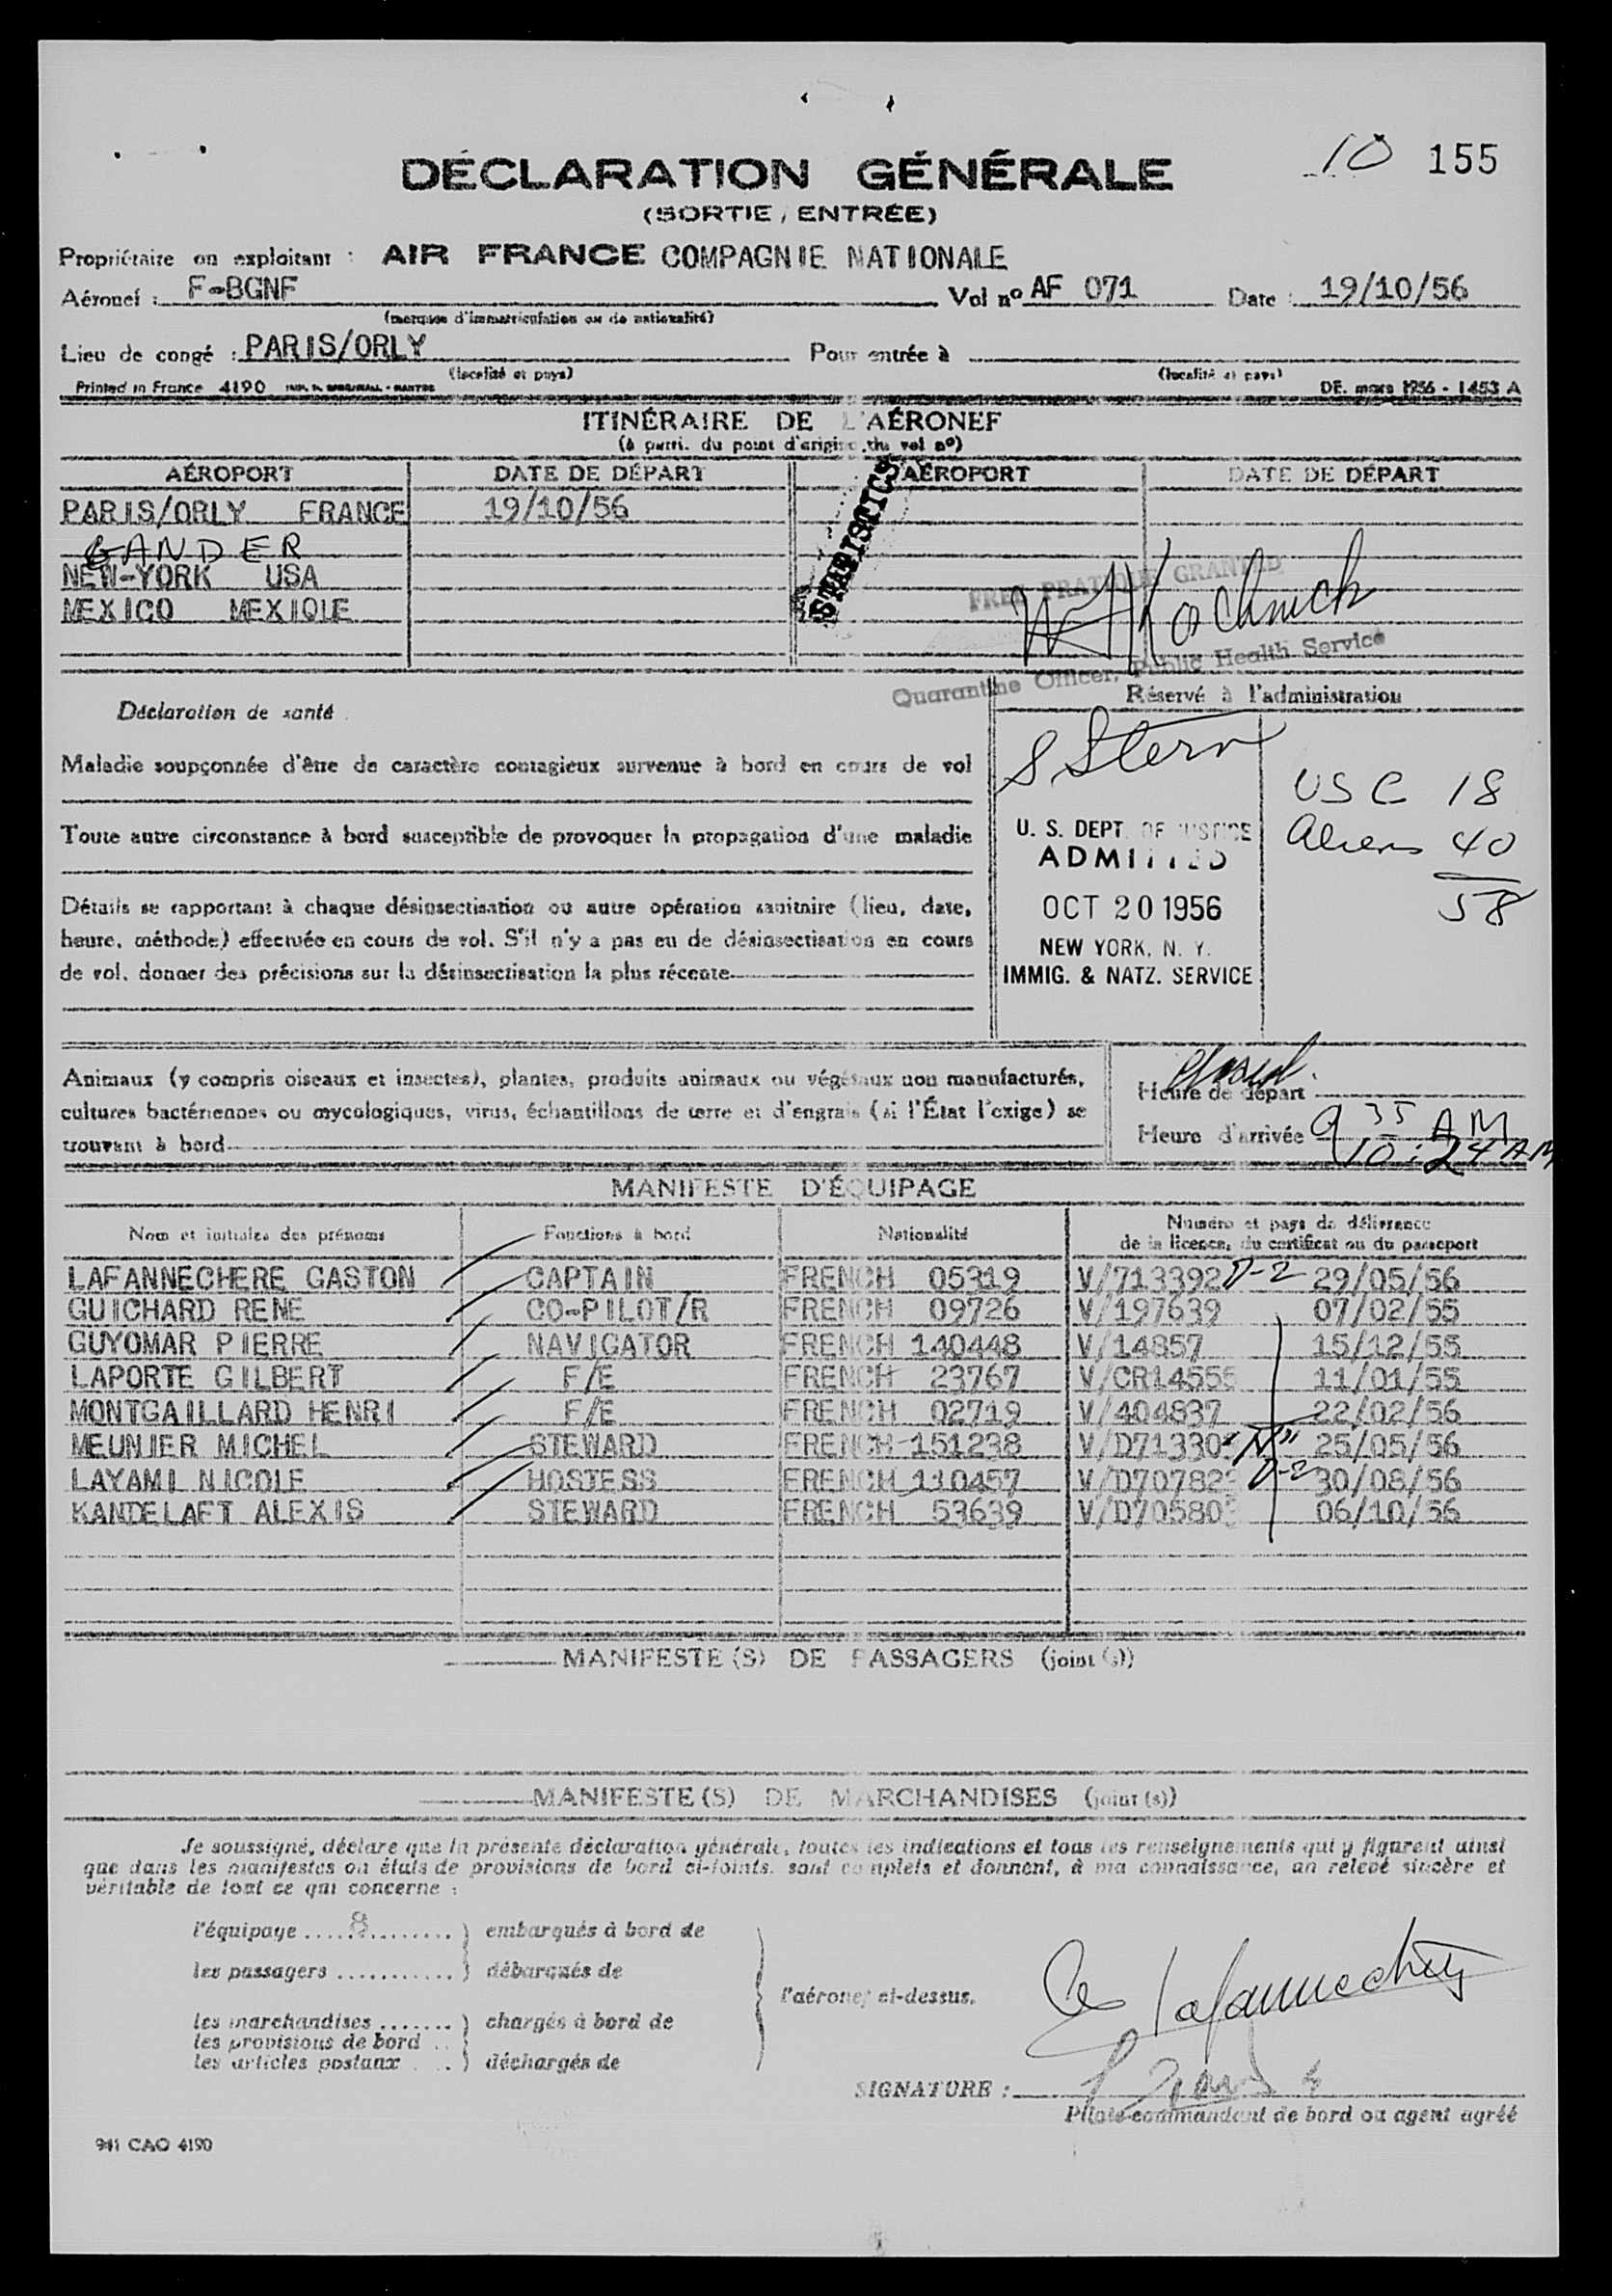 10 155
DÉCLARATION GÉNÉRALE
(SORTIE / ENTRÉE)
Propriétaire ou exploitant : AIR FRANCE COMPAGNIE NATIONALE
Aéronef : F-BGNF Vol nº AF 071 Date : 19/10/56
(marques d'immatriculation ou de nationalité)
Lieu de congé : PARIS/ORLY Pour entrée à
(localité et pays) (localité et pays)
Printed in France 4190 DE. mars 1956 - 1453 A
ITINÉRAIRE DE L'AÉRONEF
(à parti. du point d'origine du vol nº)
AÉROPORT DATE DE DÉPART AÉROPORT DATE DE DÉPART
PARIS/ORLY FRANCE 19/10/56
GANDER
NEW-YORK USA
MEXICO MEXIQUE
STATISTICS
FREE PRATIQUE GRANTED
Quarantine Officer, Public Health Service
Réservé à l'administration
Déclaration de santé
S Stern
Maladie soupçonnée d'être de caractère contagieux survenue à bord en cours de vol
USC 18
Toute autre circonstance à bord susceptible de provoquer la propagation d'une maladie
U. S. DEPT. OF JUSTICE
Aliens 40
ADMITTED
58
Détails se rapportant à chaque désinsectisation ou autre opération sanitaire (lieu, date,
OCT 20 1956
heure, méthode) effectuée en cours de vol. S'il n'y a pas eu de désinsectisation en cours
NEW YORK, N. Y.
de vol, donner des précisions sur la désinsectisation la plus récente
IMMIG. & NATZ. SERVICE
Animaux (y compris oiseaux et insectes), plantes, produits animaux ou végétaux non manufacturés,
Heure de départ
cultures bactériennes ou mycologiques, virus, échantillons de terre et d'engrais (si l'État l'exige) se
Heure d'arrivée 9 35 AM
trouvant à bord
10:24 AM
MANIFESTE D'ÉQUIPAGE
Nom et initiales des prénoms Fonctions à bord Nationalité Numéro et pays de délivrance
de la licence, du certificat ou du passeport
LAFANNECHERE GASTON CAPTAIN FRENCH 05319 V/713392 D-2 29/05/56
GUICHARD RENE CO-PILOT/R FRENCH 09726 V/197639 07/02/55
GUYOMAR PIERRE NAVIGATOR FRENCH 140448 V/14857 15/12/55
LAPORTE GILBERT F/E FRENCH 23767 V/CR14555 11/01/55
MONTGAILLARD HENRI F/E FRENCH 02719 V/404837 22/02/56
MEUNIER MICHEL STEWARD FRENCH 151238 V/D71330 "N" 25/05/56
LAYAMI NICOLE HOSTESS FRENCH 110457 V/D70782 D-2 30/08/56
KANDELAFT ALEXIS STEWARD FRENCH 53639 V/D70580 06/10/56
MANIFESTE (S) DE PASSAGERS (joint (s))
MANIFESTE (S) DE MARCHANDISES (joint (s))
Je soussigné, déclare que la présente déclaration générale, toutes les indications et tous les renseignements qui y figurent ainsi
que dans les manifestes ou états de provisions de bord ci-joints, sont complets et donnent, à ma connaissance, un relevé sincère et
véritable de tout ce qui concerne :
l'équipage .... 8 ........ ) embarqués à bord de
les passagers ............ ) débarqués de
l'aéronef ci-dessus.
les marchandises ....... ) chargés à bord de
les provisions de bord ..
les articles postaux . .. ) déchargés de
Lafannechère
SIGNATURE :
Pilote-commandant de bord ou agent agréé
941 CAO 4190